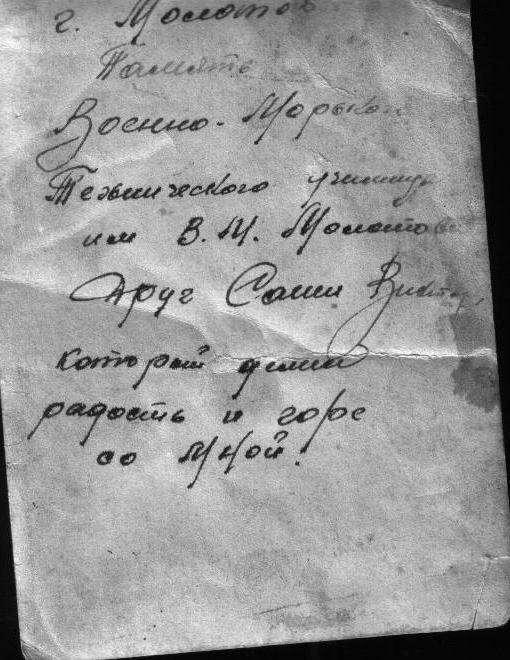 г. Молотов
Память
Военно-Морской
Технического училища
им В. М. Молотова
Друг Саши Виктор,
который делил
радость и горе
со мной.